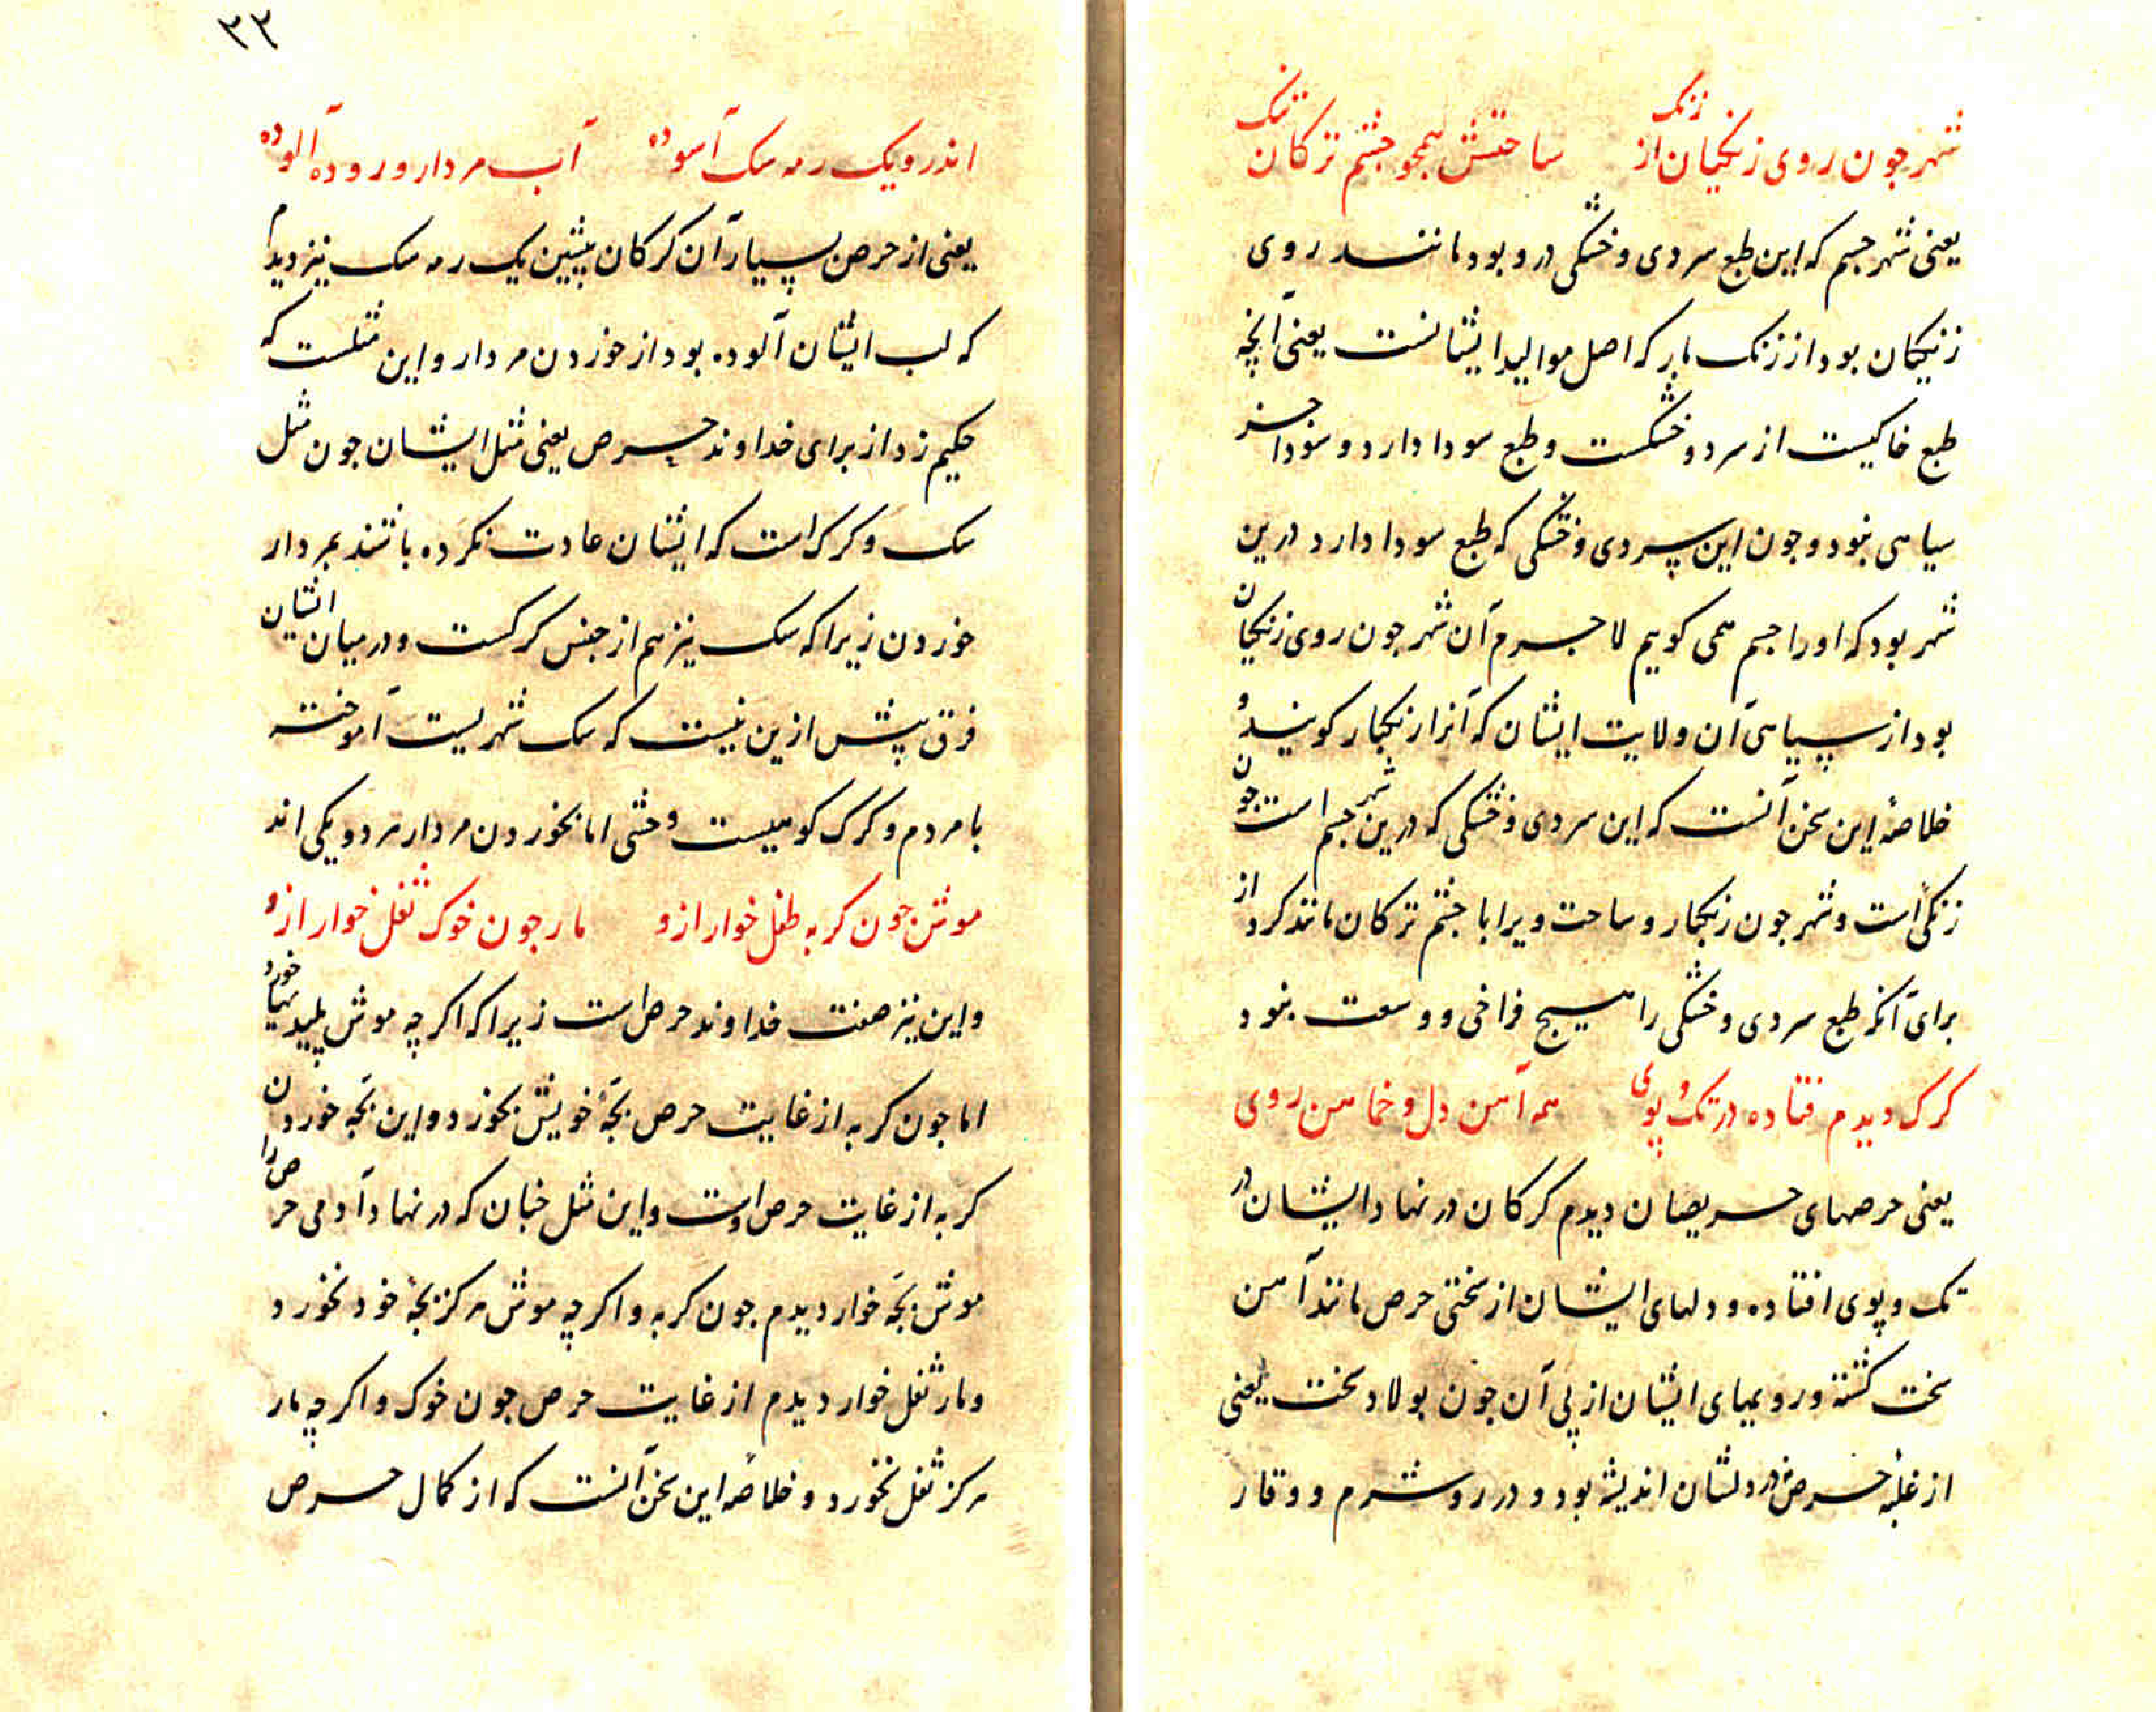 شهر جون روی زنکیان از زنک ساحتش همجو جشم ترکان تنک
یعنی شهر جسم که این طبع سردی و خشکی درو بود مانند روی
زنکیان بود از زنک بار که اصل موالید ایشانست یعنی آنچه
طبع خاکیست از سرد و خشکست و طبع سودا دارد و سودا جز
سیاهی نبود و جون این سردی و خشکی که طبع سودا دارد درین
شهر بود که اورا جسم همی کویم لاجرم آن شهر جون روی زنکیان
بود از سیاهی آن ولایت ایشان که آنرا زنکبار کویند و
خلاصهٔ این سخن آنست که این سردی و خشکی که درین شهر جسم است جون
زنکی است و شهر جون زنکبار و ساحت ویرا با جشم ترکان مانند کرد از
برای آنکه طبع سردی و خشکی را هیج فراخی و وسعت نبود
کرک دیدم فتاده در تک و پوی همه آهن دل و خماهن روی
یعنی حرصهای حریصان دیدم کرکان در نهاد ایشان در
تک و پوی افتاده و دلهای ایشان از سختی حرص مانند آهن
سخت کشته و رویهای ایشان از پی آن جون بولاد سخت یعنی
از غلبه حرص در دلشان اندیشه بود و در رو شرم و وقار
۳۲
اندرو یک رمه سک آسوده آب مردار و روده آلوده
یعنی از حرص بسیار آن کرکان پیشین یک رمه سک نیز دیدم
که لب ایشان آلوده بود از خوردن مردار و این مثلست که
حکیم زد از برای خداوند حرص یعنی مثل ایشان جون مثل
سک و کرک است که ایشان عادت نکرده باشند بمردار
خوردن زیرا که سک نیز هم از جنس کرکست و در میان ایشان
فرق بیش ازین نیست که سک شهریست آموخته
با مردم و کرک کوهیست وحشی اما بخوردن مردار هر دو یکی اند
موش جون کربه طفل خوار ازو مار جون خوک ثفل خوار ازو
و این نیز صفت خداوند حرص است زیرا که اکر چه موش پلیدیها خورد
اما جون کربه از غایت حرص بجهٔ خویش بخورد و این بجه خوردن
کربه از غایت حرص اوست و این مثل جنان که در نهاد آدمی حرص را
موش بجه خوار دیدم جون کربه و اکر چه موش هرکز بجهٔ خود نخورد
و مار ثفل خوار دیدم از غایت حرص جون خوک و اکر چه مار
هرکز ثفل نخورد و خلاصهٔ این سخن آنست که از کمال حرص